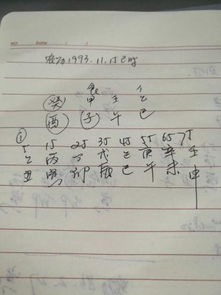 农历1993.11.15巳时
癸 甲 壬 乙
酉 子 午 巳
① 5 15 25 35 45 55 65 75
乙 丙 丁 戊 己 庚 辛 壬
丑 寅 卯 辰 巳 午 未 申